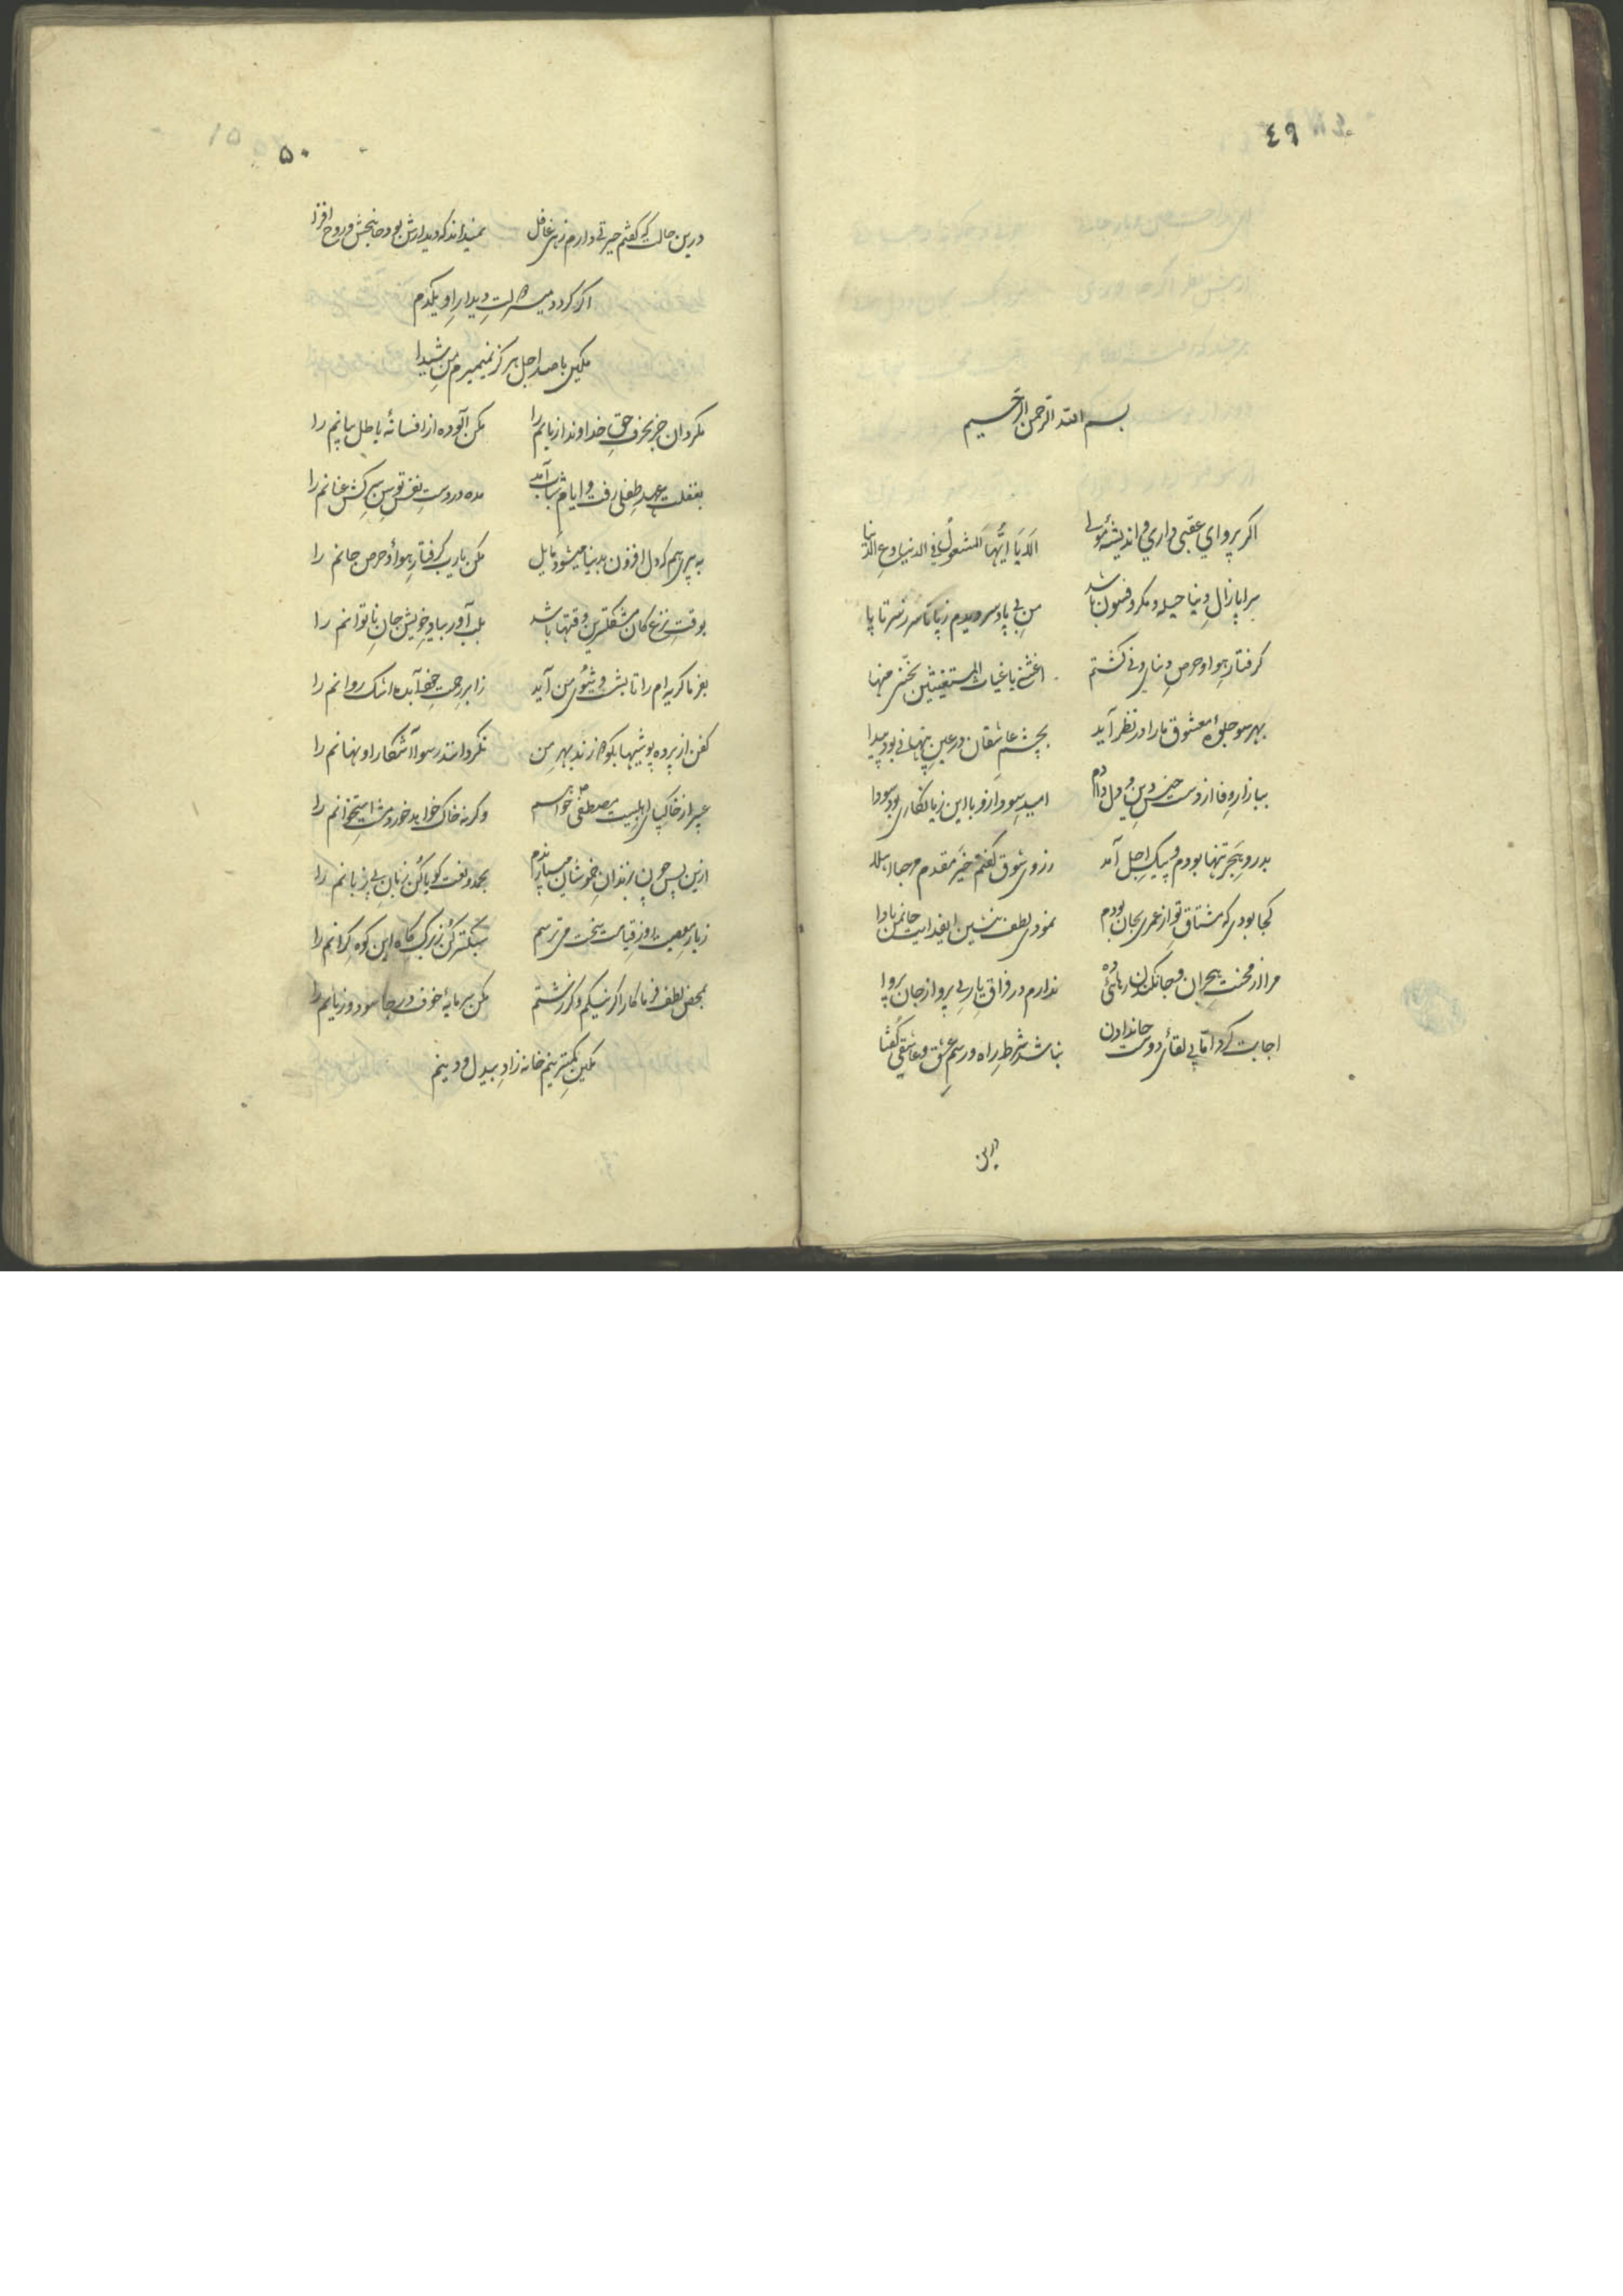 ٤٩
بسم الله الرحمن الرحیم
اگر پروای عقبی داری و اندیشهٔ مولی الا یا ایها المشغول فی الدنیا دع الدنیا
سراپا زال دنیا حیله و مکر و فسون باشد من بی پا و سر دیدم ز پا تا سر ز سر تا پا
گرفتار هوا و حرص دنیای دنی گشتم اغثنی یا غیاث المستغیثین نجنی منها
بهر سو جلوهٔ معشوق ما را در نظر آید بچشم عاشقان در عین پنهانی بود پیدا
ببازار وفا از دست جنس دین و دل دادم امید سود ازو با این زیانکاری بود سودا
بدرد هجر تنها بودم و پیک اجل آمد ز روی شوق گفتم خیر مقدم مرحبا اهلا
کجا بودی که مشتاق تو از عمری بجان بودم نمودی لطف بنشین ای فدایت جان من بادا
مرا از محنت هجران و جانکندن رهائی ده ندارم در فراق یار بی پروا ز جان پروا
اجابت کرد اما بی لقای دوست جاندادن نباشد شرط راه و رسم عشق و عاشقی گفتا
درین
۵۰
درین حالت که گفتم حیرتی دارم زهی غافل نمیداند که دیدارش بود جانبخش و روح افزا
اگر گردد میسر لذت دیدار او یکدم
مکین با صد اجل هرگز نمیمیرم من شیدا
مگردان جز بحرف حق خداوندا زبانم را مکن آلوده از افسانهٔ باطل بیانم را
بغفلت عهد طفلی رفت و ایام شباب آمد مده در دست نفس توسن سرکش عنانم را
به پیری هم که دل افزون بدنیا میشود مایل مکن یارب گرفتار هوا و حرص جانم را
بوقت نزع کان مشکلترین وقتها باشد بلب آور بیاد خویش جان ناتوانم را
بفرما گریه ام را تا بشست و شوی من آید ز ابر رحمت خود آب ده اشک روانم را
کفن از پرده پوشیها بکوه زند بهر من نگرداند رسوا آشکارا و نهانم را
عبیر از خاکپای اهلبیت مصطفی خواهم وگرنه خاک خواهد خورد مشت استخوانم را
ازین پس چون بزندان خموشان میسپارندم بحمد و نعت گویا کن زبان بی زبانم را
ز بار معصیت روز قیامت سخت می ترسم سبکتر کن ز برگ کاه این کوه گرانم را
بمحض لطف فرما کار اگر نیکم و گر زشتم مکن سرمایهٔ خوف و رجا سود و زیانم را
مکین کمترینم خانه زاد بیدل و دینم